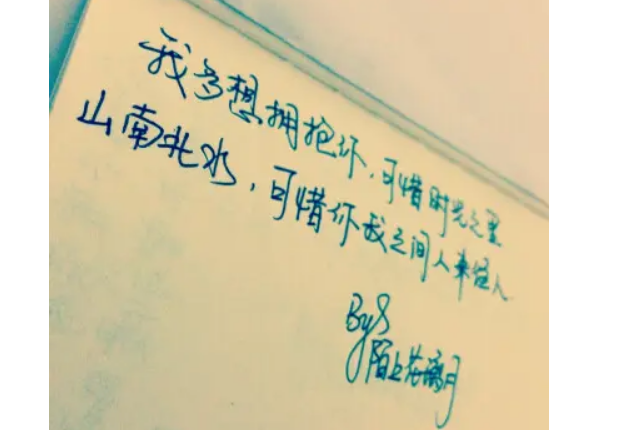 我多想拥抱你,可惜时光之里
山南北水,可惜你我之间人来人
By
陌上花离月